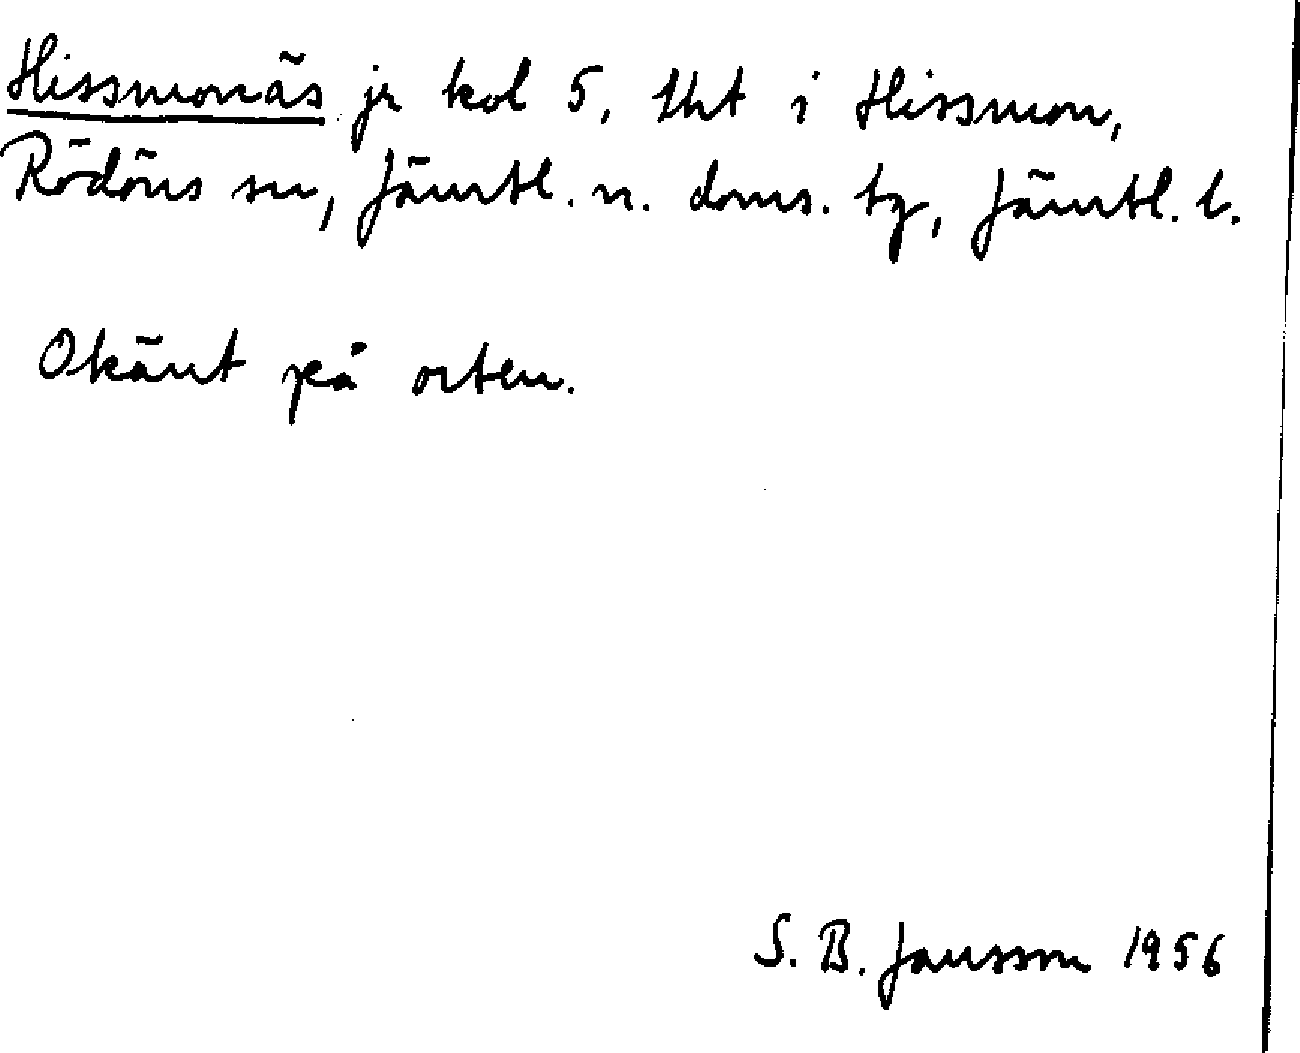 Hissmonäs jr kol 5, lht i Hissmon,
Rödöns sn, Jämtl. n. doms. tg, Jämtl. l.
Okänt på orten.
S. B. Jansson 1956